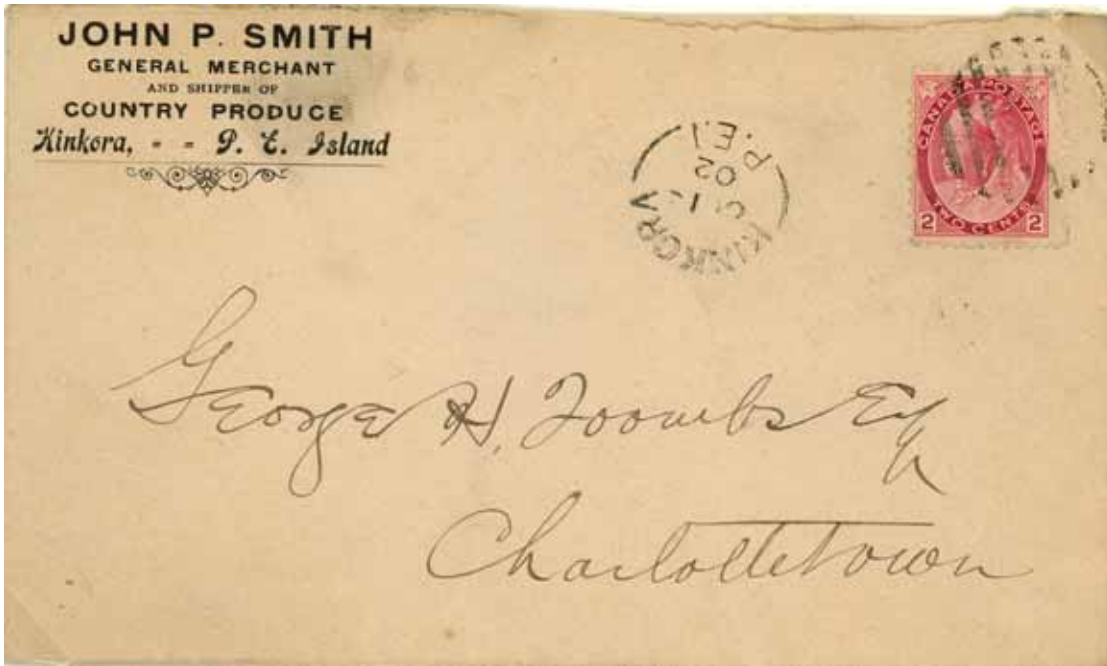 JOHN P. SMITH
GENERAL MERCHANT
AND SHIPPER OF
COUNTRY PRODUCE
Kinkora, - - P. E. Island
CANADA POSTAGE
TWO CENTS
2 2
KINKORA
02
P.E.I
George H. Toombs Esq
Charlottetown